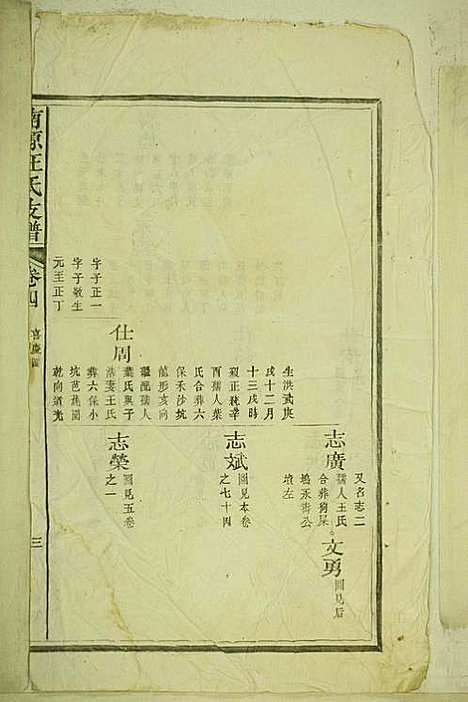 生洪武庚
戌十二月
十三戌時
殁正統辛
酉孺人葉
氏合葬六
保禾沙坑
艮形亥向
繼配孺人
葉氏與子
浩妻王氏
葬六保小
坑芭蕉園
乾向道光
仕周
字子正一
字子敬生
元至正丁
又名志二
孺人王氏
合葬狗屎
塢汞齊公
墳左
志廣
圖見本卷
之七十四
志斌
圖見五卷
之一
志榮
文勇
圖見后
南源汪氏支譜
卷四
三